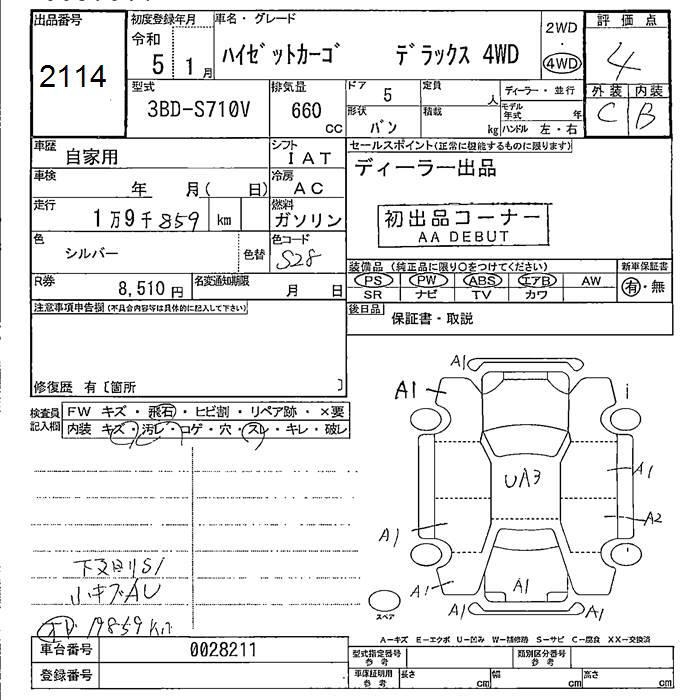 出品番号 初度登録年月 車名・グレード 2WD 評価点
2114 令和 5年 1月 ハイゼットカーゴ デラックス 4WD ・ 4WD 4
型式 排気量 ドア 5 定員 人 ディーラー・並行 外装 内装
3BD-S710V 660 cc 形状 バン 積載 kg モデル年式 年 C B
ハンドル 左・右
車歴 自家用 シフト IAT セールスポイント(正常に機能するものに限ります)
車検 年 月( 日) 冷房 AC ディーラー出品
走行 1万9千859 km 燃料 ガソリン 初出品コーナー
AA DEBUT
色 シルバー 色替 色コード S28
装備品 (純正品に限り○をつけてください) 新車保証書
R券 8,510円 名変通知期限 月 日 PS PW ABS エアB AW 有・無
SR ナビ TV カワ
注意事項申告欄(不具合内容等は具体的に記入して下さい) 後日品 保証書・取説
修復歴 有〔箇所 〕
検査員記入欄 FW キズ・飛石・ヒビ割・リペア跡・×要
内装 キズ・汚レ・コゲ・穴・スレ・キレ・破レ
A1
A1
A1
UA3
A2
A1
A1
A1
A1
A1
スペア
下回りS1
小キズAU
19859km
A-キズ E-エクボ U-凹み W-補修跡 S-サビ C-腐食 XX-交換済
車台番号 0028211 型式指定番号 参考 類別区分番号 参考
登録番号 車庫証明用 参考 長さ cm 幅 cm 高さ cm